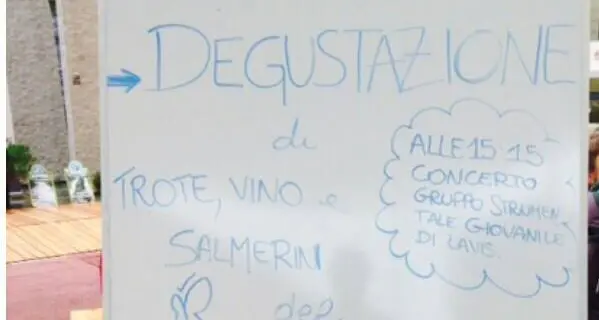 DEGUSTAZIONE
di
TROTE, VINO e
SALMERINI
del
ALLE 15 15
CONCERTO
GRUPPO STRUMEN
TALE GIOVANILE
DI LAVIS